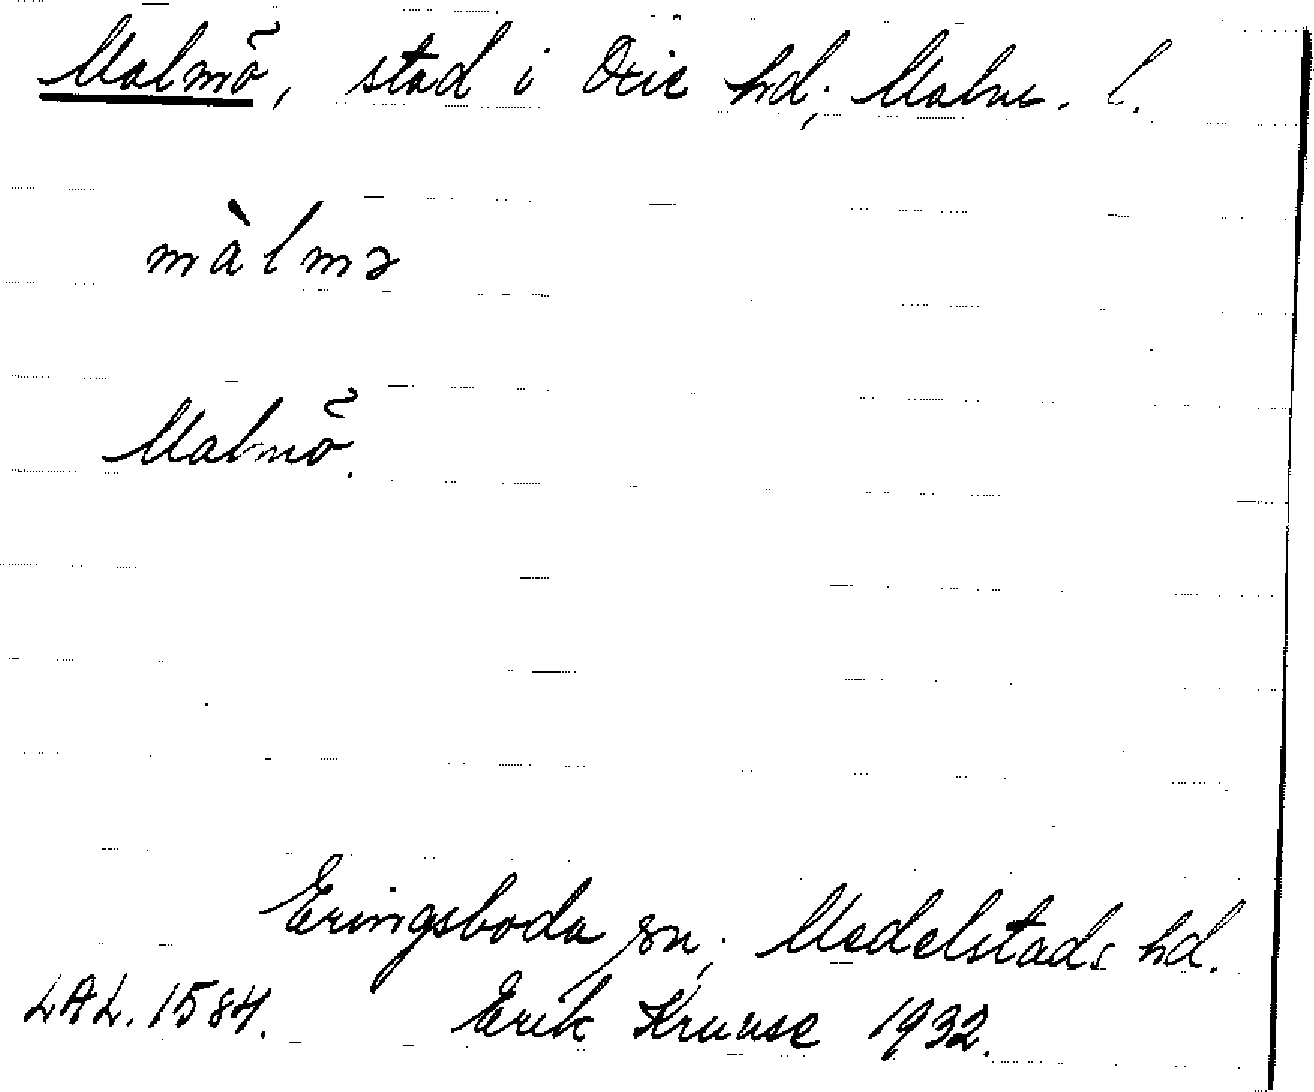 Malmö, stad i Oxie hd; Malm. l.
màlmə
Malmö.
Eringsboda sn; Medelstads hd.
LAL. 1584. Erik Kruuse 1932.